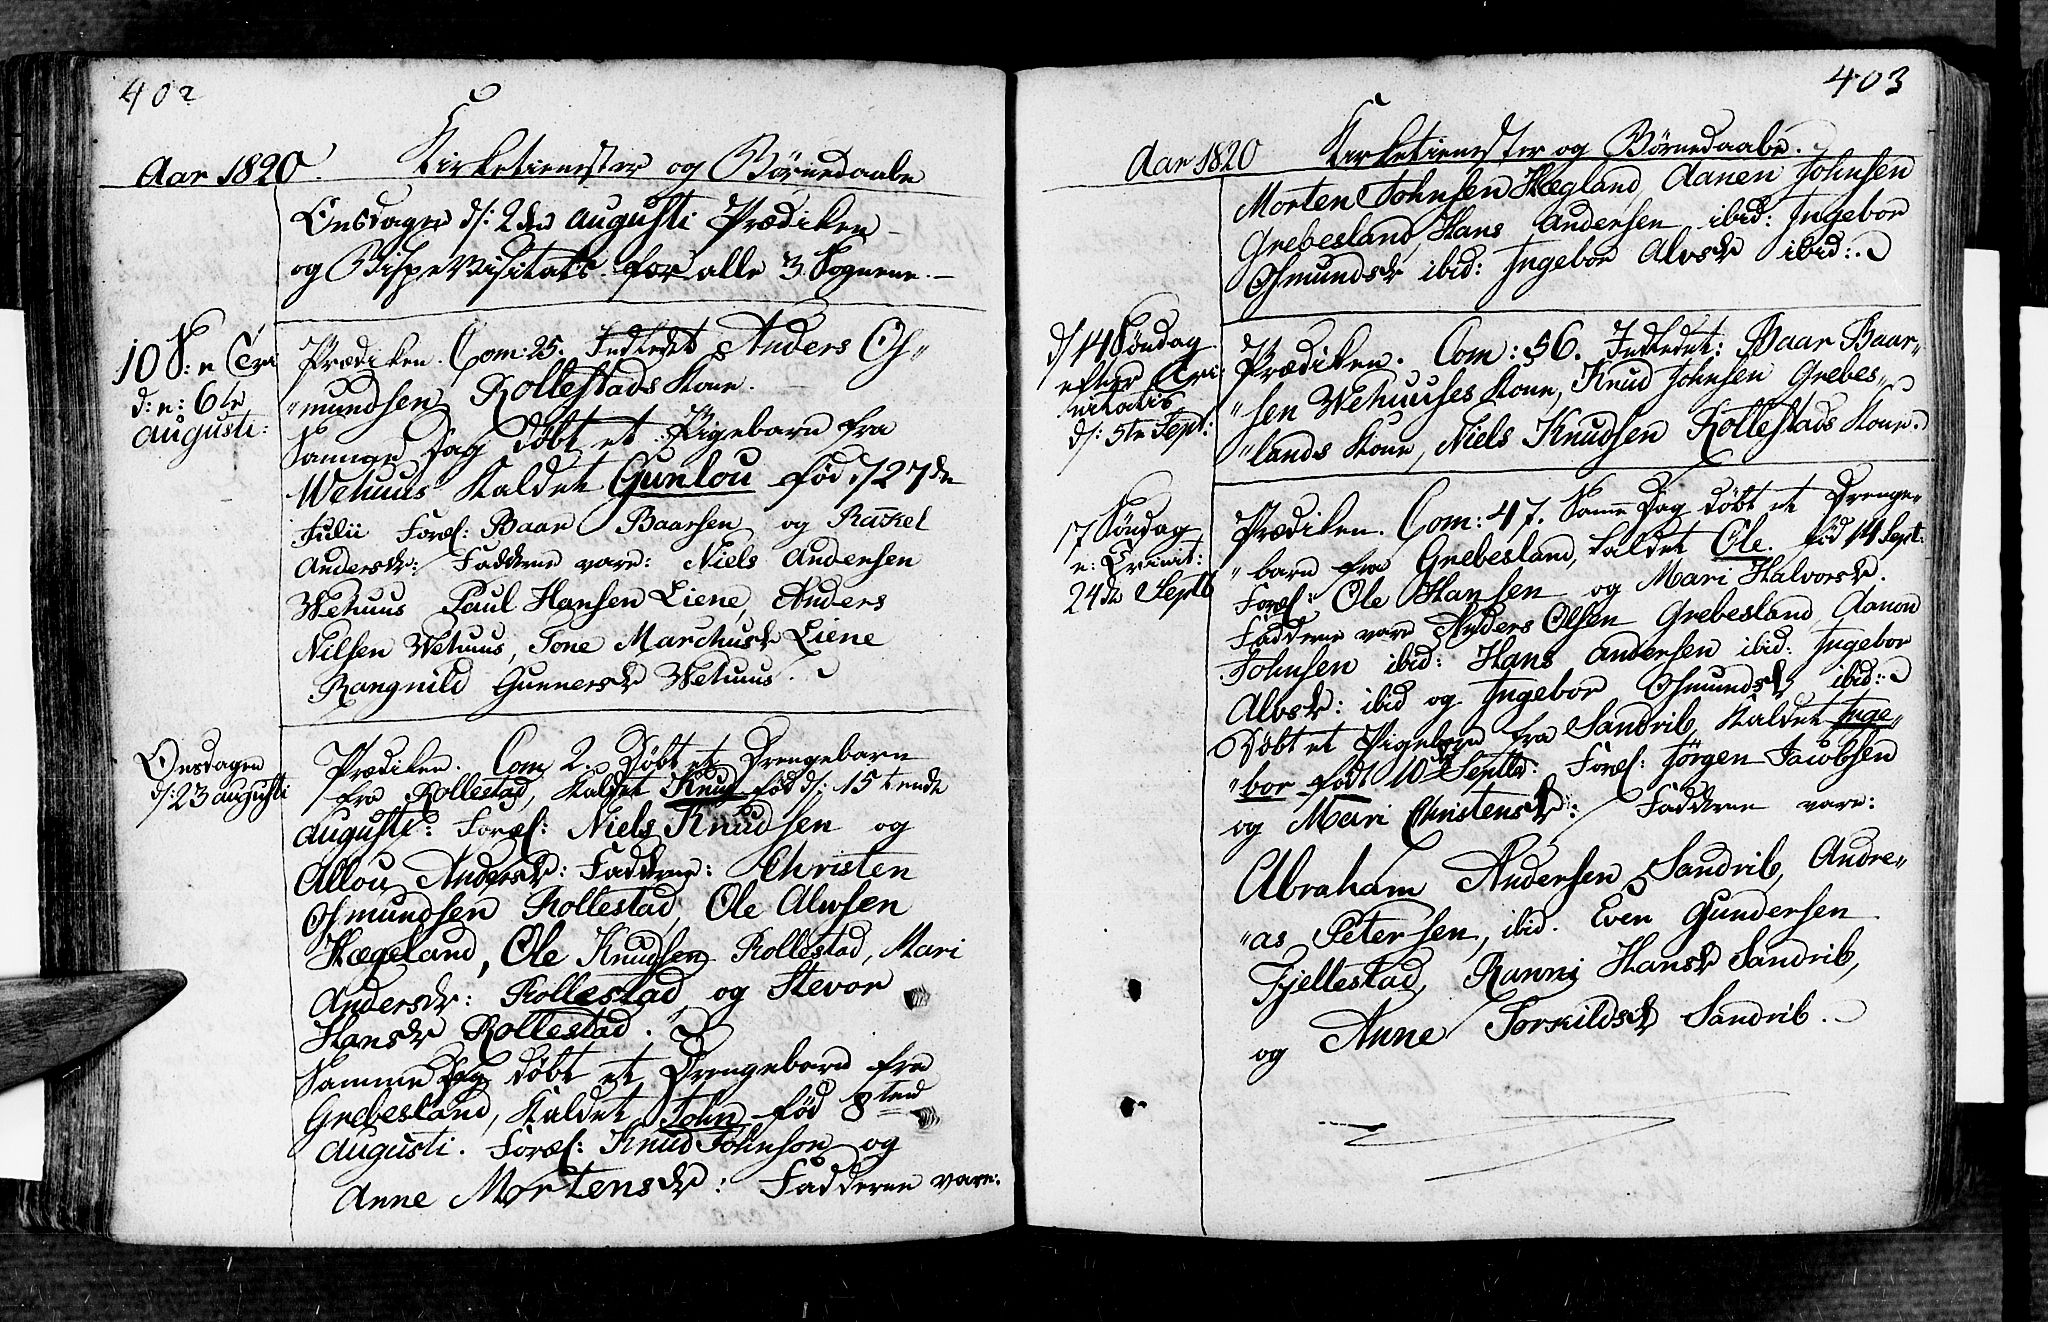 402
Aar 1820. Kirketienester og Børnedaabe
Onsdagen d: 2den Augusti Prædiken
og Bispevisitats for alle 3 Sognene.
10 S: n Tri
d: n: 6te
Augusti:
Prædiken. Com: 25. Indledt Anders Os„
„mundsen Rollestads Kone.
Samme Dag døbt et Pigebarn fra
Wehuus kaldet Gunlou fød d 27de
Julii Foræl: Baar Baarsen og Rachel
Andersdr: Fadderne vare: Niels Andersen
Wehuus Paul Hansen Liene, Anders
Nilsen Wehuus, Tone Marchusdr Liene
Rangnild Gunnersdr Wehuus.
Onsdagen
d: 23 Augusti
Prædiken. Com 2. Døbt et Drengebarn
fra Rollestad, kaldet Knud fød d: 15tende
Augusti: Foræl: Niels Knudsen og
Allou Andersdr: Fadderne: Christen
Osmundsen Rollestad, Ole Alwsen
Hægeland, Ole Knudsen Rollestad, Mari
Andersdr: Rollestad og Stevor
Hansdr Rollestad.
Samme Dag døbt et Drengebarn fra
Grebesland, kaldet John fød 8tend
Augusti. Foræl: Knud Johnson og
Anne Mortensdr: Fadderne vare:
403
Aar 1820 Kirketienester og Børnedaabe.
Morten Johnsen Hægland, Aanen Johnsen
Grebesland, Hans Andersen ibid: Ingebor
Osmundsdr ibid: Ingebor Alvsdr ibid:
d/ 14 Søndag
efter Tri:
nitatis
d: 5te Sept:
Prædiken. Com: 56. Indledet: Baar Baar„
„sen Wehuuses Kone, Knud Johnsen Grebes„
„lands Kone, Niels Knudsen Rollestads Kone.
17 Søndag
n: Trinit:
24de Septb
Prædiken. Com: 47. Samme Dag døbt et Drenge„
„barn fra Grebesland, kaldet Ole. fød 14 Sept:
Foræl: Ole Hansen og Mari Halvorsdr.
Fadderne vare Anders Olsen Grebesland, Aanon
Johnsen ibid: Hans Andersen ibid: Ingebor
Alvsdr: ibid og Ingebor Osmundsdr ibid:
Døbt et Pigebarn fra Sandrib, kaldet Inge„
„bor født 10 Septbr: Foræl: Jørgen Jacobsen
og Mari Christensdr: Fadderne vare:
Abraham Andersen Sandrib, Andre„
„as Petersen, ibid. Even Gundersen
Fjellestad, Ranni Hansdr Sandrib,
og Anne Torkildsdr Sandrib.